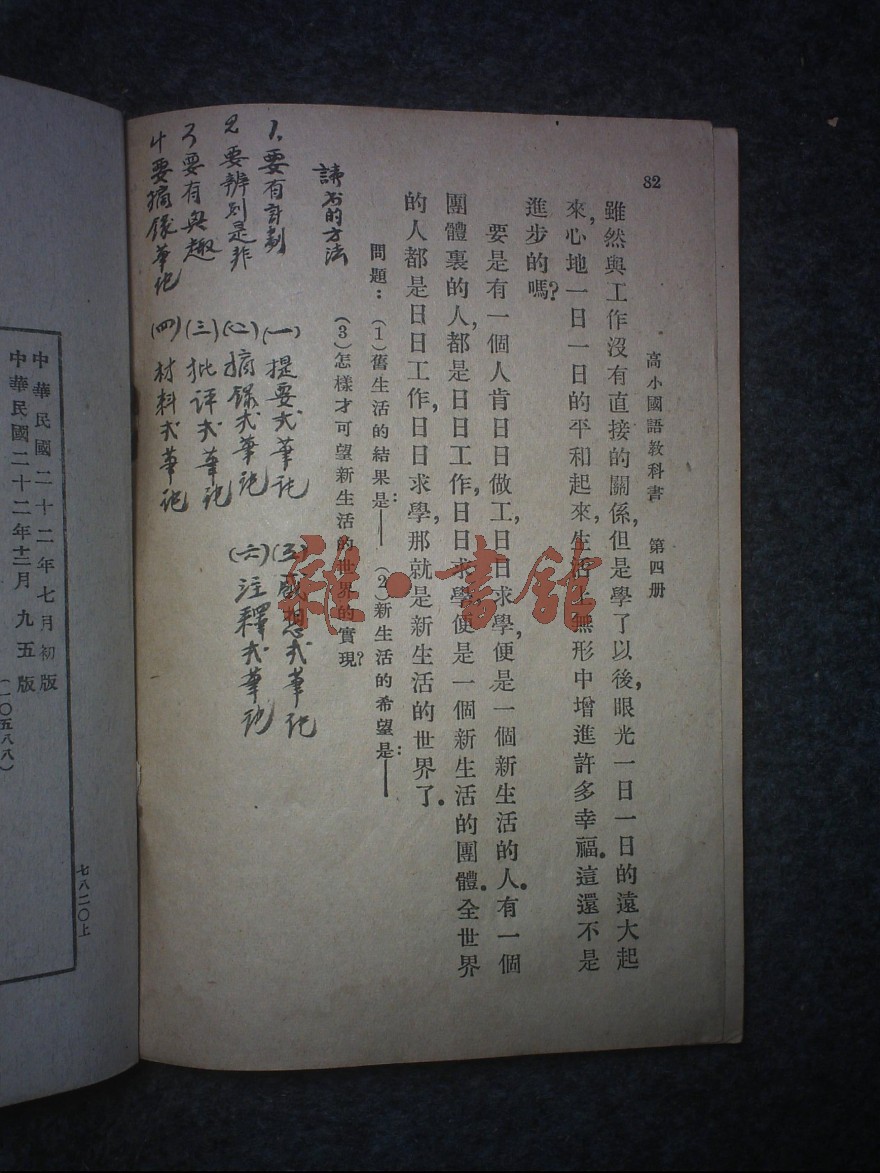 82
高小國語教科書　第四册
雖然與工作沒有直接的關係，但是學了以後，眼光一日一日的遠大起
來，心地一日一日的平和起來，生活上無形中增進許多幸福。這還不是
進步的嗎？
要是有一個人肯日日做工，日日求學，便是一個新生活的人。有一個
團體裏的人，都是日日工作，日日求學，便是一個新生活的團體。全世界
的人都是日日工作，日日求學，那就是新生活的世界了。
問題：（1）舊生活的結果是：——（2）新生活的希望是：——
（3）怎樣才可望新生活的世界的實現？
讀书的方法
1、要有計劃
2 要辨别是非
3 要有興趣
4 要摘錄筆记
(一) 提要式筆记
(二) 摘錄式筆记
(三) 批评式筆记
(四) 材料式筆记
(五) 感想式筆记
(六) 注釋式筆记
中華民國二十二年七月初版
中華民國二十二年十二月九五版
（一〇五八八）
七八二〇上
雜·書館